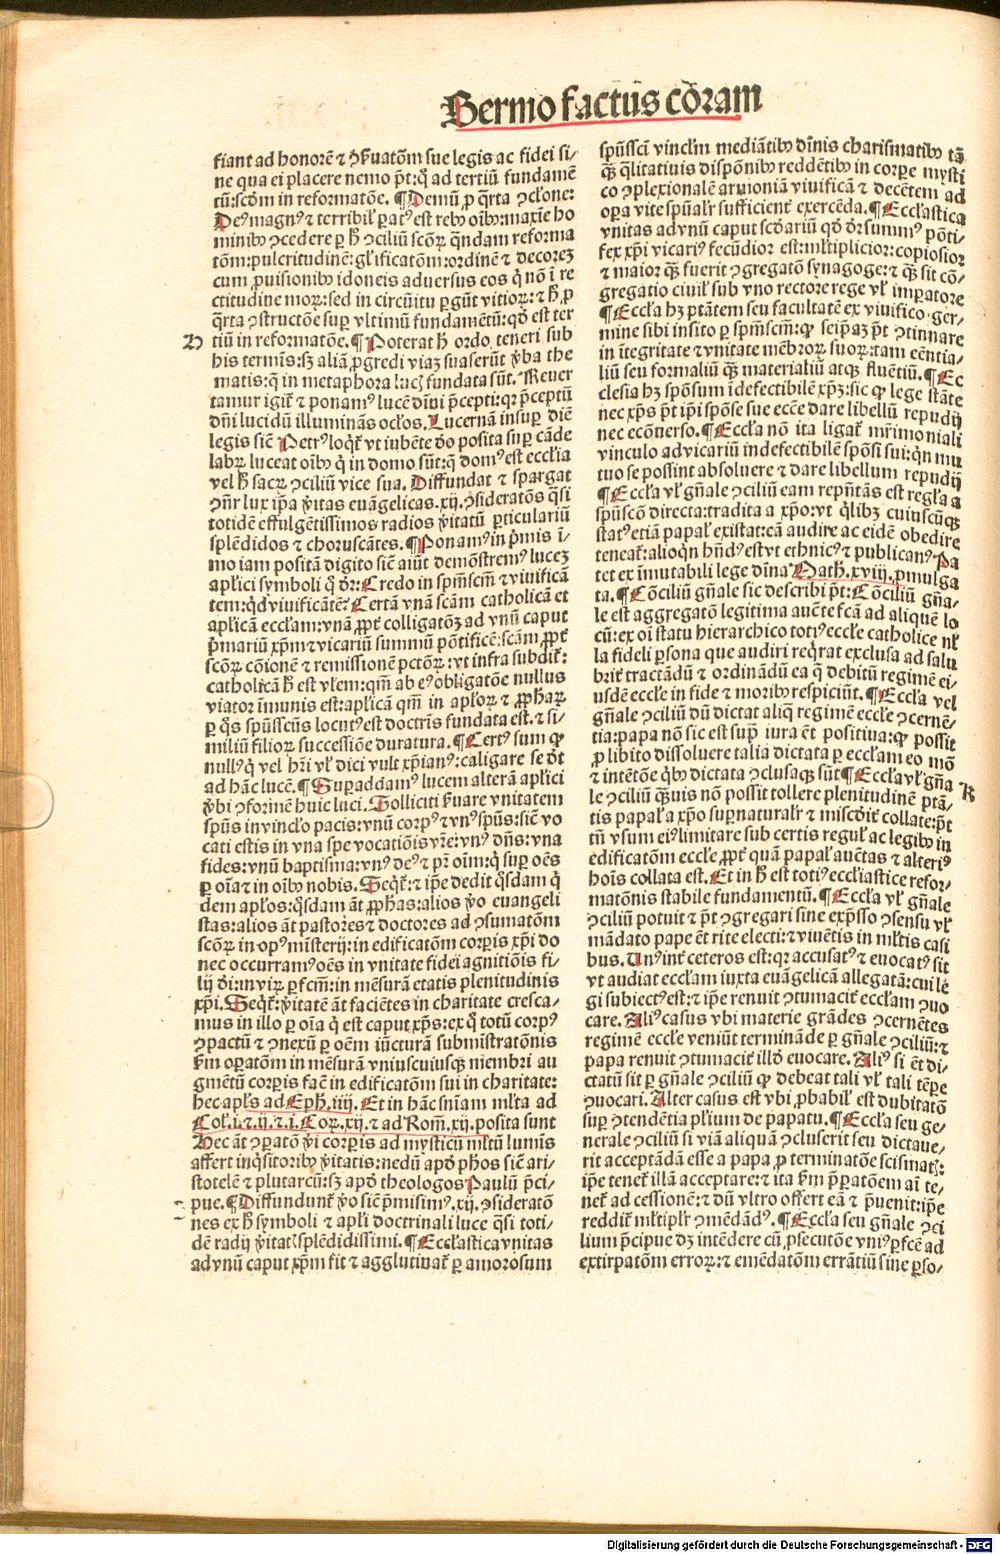 Sermo factus corā
fiant ad honorē ⁊ ꝯẜuatōm sue legis ac fidei si⸗
ne qua ei placere nemo pōt: qd̄ ad tertiū fundamē
tū: scōm in reformatōe. ¶ Demū ꝓ q̄rta ꝯcl̄one:
Deꝰ magnꝰ ⁊ terribil̓ ꝑatꝰ est rebꝰ oībꝰ: maxie ho
minibꝰ ꝯcedere ꝑ h̄ ꝯciliū scōꝝ q̄ndam reforma
tōm: pulcritudinē: gl̓ificatōm: ordinē ⁊ decoreꝫ
cum ꝓuisionibꝰ idoneis aduersus eos q̄ nō ī re
ctitudine moꝝ: sed in circūitu ꝑgūt vitioꝝ: ⁊ h̄ ꝓ
q̄rta ꝯstructōe suꝑ vltimū fundamētū: qd̄ est ter
tiū in reformatōe. ¶ Poterat h̄ ordo teneri sub
his termīs: sꝫ aliā ꝓgredi viaꝫ suaserūt v̓ba the
matis: q̄ in metaphora lucꝭ fundata sūt. Reuer
tamur igit̄ ⁊ ponamꝰ lucē dīni p̄cepti: qꝛ p̄ceptū
dn̄i lucidū illuminās ocl̓os. Lucernā insuꝑ diē
legis sicē Petrꝰ loq̄t̄ vt inhēte dō posita suꝑ cāde
labꝝ luceat oībꝰ q̄ in domo sūt: q̄ domꝰ est eccl̓ia
vel h̄ sacꝝ ꝯciliū vice sua. Diffundat ⁊ spargat
ꝯn̄r lux ip̄a v̓itas euāgelicas .xij. ꝯsideratōs q̄si
totidē effulgētissimos radios v̓itatū ꝑticulariū
splēdidos ⁊ choruscātes. ¶ Ponamꝰ in p̄mis ī⸗
mo iam positā digito sicē aiūt demōstremꝰ luceꝫ
apl̓ici symboli q̄ dr̄: Credo in sp̄mscm̄ ⁊ viuificā
tem: qd viuificātē? Certā vnā scām catholicā et
apl̓icā eccl̓am: vnā ꝓpt̄ colligatōꝫ ad vnū caput
p̄mariū xp̄m: ⁊ vicariū summū pōtificē: scām ꝓpt̄
scōꝝ cōionē ⁊ remissionē pctōꝝ: vt infra subdit̄:
catholicā h̄ est vl̓em: qm̄ ab eꝰ obligatōe nullus
viator īmunis est: apl̓icā qm̄ in apl̓oꝝ ⁊ ꝓphaꝝ
ꝑ q̄s sp̄ussctūs locutꝰ est doctris fundata est. ⁊ si⸗
miliū filioꝝ successiōe duratura. ¶ Certꝰ sum ꝙ
nullꝰ q̄ vel hr̄i vl̓ dici vult xp̄ianꝰ: caligare se dēt
ad hāc lucē. ¶ Suꝑaddamꝰ lucem alterā apl̓ici
v̓bi ꝯformē huic luci. Solliciti ẜuare vnitatem
sp̄us in vincl̓o pacis: vnū corpꝰ ⁊ vnꝰ sp̄us: sicē vo
cati estis in vna spe vocatiōis vr̄e: vnꝰ dn̄s: vna
fides: vnū baptisma: vnꝰ deꝰ ⁊ pr̄ oīm: q̄ suꝑ oēs
ꝑ oīa ⁊ in oībꝰ nobis. Seqt̄: ⁊ ip̄e dedit q̄sdam q̄
dem apl̓os: q̄sdam āt ꝓphas: alios v̓o euangeli
stas: alios āt pastores ⁊ doctores ad ꝯsumatōm
scōꝝ in opꝰ misterij: in edificatōm corpis xp̄i do
nec occurramꝰ oēs in vnitate fidei agnitiōnis fi⸗
lij dī: in viꝝ ꝑfcm̄: in mēsurā etatis plenitudinis
xp̄i. Seqt̄: v̓itatē āt faciētes in charitate cresca⸗
mus in illo ꝑ oīa q̄ est caput xp̄s: ex q̄ totū corpꝰ
ꝯpactū ⁊ ꝯnexū ꝑ oēm iūcturā submistratōnis
ẜm oꝑatōm in mēsurā vniuscuiusqꝫ membri au
gmētū corpis facē in edificatōm sui in charitate:
hec apl̓s ad Eph̄. iiij. Et in hāc sn̄iam ml̓ta ad
Col̓. i. ⁊ .ij. ⁊ .i. Coꝝ. xij. ⁊ ad Rom̄. xij. posita sunt
Hec āt ꝯꝑatō v̓i corpis ad mysticū ml̓tū lumīs
affert inq̄sitoribꝰ v̓itatis: nedū apd̓ phos sicē ari⸗
stotelē ⁊ plutarcū: sꝫ apd̓ theologos Paulū p̄ci⸗
pue. ¶ Diffundunt̄ v̓o sicē p̄misimꝰ .xij. ꝯsideratō
nes ex h̄ symboli ⁊ apl̓i doctrinali luce q̄si toti⸗
dē radij v̓itatꝭ splēdidissimi. ¶ Eccl̓astica vnitas
ad vnū caput xp̄m fit ⁊ agglutinat̄ ꝑ amorosum
sp̄ussci̅ vincl̓m mediātibꝰ dīnis charismatibꝰ tā
qꝫ q̄litatiuis dispōnibꝰ reddētibꝰ in corꝑe mysti
co ꝯplexionalē armoniā viuificā ⁊ decētem ad
oꝑa vite sp̄ual̓r sufficient̄ exercēda. ¶ Eccl̓astica
vnitas ad vnū caput scd̄ariū qd̄ dr̄ summꝰ pōti⸗
fex xp̄i vicariꝰ fecūdior est: ml̓tiplicior: copiosior
⁊ maior qꝫ fuerit ꝯgregatō synagoge: ⁊ qꝫ sit cō⸗
gregatio ciuil̓ sub vno rectore rege vl̓ imꝑatore
¶ Eccl̓a hꝫ ptātem seu facultatē ex viuifico ger⸗
mine sibi insito ꝑ sp̄mscm̄: ꝙ seip̄aꝫ pōt ꝯtinnare
in ītegritate ⁊ vnitate mēbroꝝ suoꝝ: tam eēntia⸗
liū seu formaliū qꝫ materialiū atqꝫ fluētiū. ¶ Ec
clesia hꝫ sponsum īdefectibilē xp̄ꝫ: sic ꝙ lege stāte
nec xp̄s pōt ip̄i spōse sue ecc̄e dare libellū repudij
nec ecōuerso. ¶ Eccl̓a nō ita ligat̄ mr̄imoniali
vinculo ad vicariū indefectibilē spōsi sui: qn̄ mu
tuo se possint absoluere ⁊ dare libellum repudij
¶ Eccl̓a vl̓ gn̄ale ꝯciliū eam repn̄tās est regl̓a a
sp̄uscō directa: tradita a xp̄o: vt q̄libꝫ cuiuscūqꝫ
statꝰ etiā papal̓ existat: eā audire ac eidē obedire
teneat̄: alioqn̄ hn̄dꝰ est vt ethnicꝰ ⁊ publicanꝰ. Pa
tet ex īmutabili lege dīna Math̄. xviij. ꝓmulga
ta. ¶ Cōciliū gn̄ale sic describi pōt: Cōciliū gn̄a⸗
le est aggregatō legitima auc̄te fcā ad aliquē lo
cū: ex oī statu hierarchico totiꝰ eccl̓e catholice nl̓
la fideli ꝑsona que audiri req̄rat exclusa ad salu
brit̄ tractādū ⁊ ordinādū ea q̄ debitū regimē ei⸗
usdē eccl̓e in fide ⁊ moribꝰ respiciūt. ¶ Eccl̓a vel
gn̄ale ꝯciliū dū dictat aliq̄ regimē eccl̓e ꝯcernē⸗
tia: papa nō sic est supꝰ iura ēt positiua: ꝙ possit
ꝓ libito dissoluere talia dictata ꝑ eccl̓am eo mō
⁊ intētōe q̄bꝰ dictata ꝯclusaqꝫ sūt ¶ Eccl̓a vl̓ gn̄a
le ꝯciliū qꝫuis nō possit tollere plenitudinē ptā⸗
tis papal̓ a xp̄o suꝑnatural̓r ⁊ misc̄dit̄ collate: pōt
tn̄ vsum eiꝰ limitare sub certis regul̓ ac legibꝰ in
edificatōm eccl̓e, ꝓpt̄ quā papal̓ auc̄tas ⁊ alteriꝰ
hoīs collata est. Et in h̄ est totiꝰ eccl̓iastice refor⸗
matōnis stabile fundamentū. ¶ Eccl̓a vl̓ gn̄ale
ꝯciliū potuit ⁊ pōt ꝯgregari sine exp̄sso ꝯsensu vl̓
mādato pape ēt rite electi: ⁊ viuētis in ml̓tis casi
bus. Vnꝰ int̄ ceteros est: qꝛ accusatꝰ ⁊ euocatꝰ sit
vt audiat eccl̓am iuxta euāgelicā allegatā: cui le
gi subiectꝰ est: ⁊ ip̄e renuit ꝯtumacit̄ eccl̓am ꝯuo
care. Aliꝰ casus vbi materie grādes ꝯcernētes
regimē eccl̓e veniūt termināde ꝑ gn̄ale ꝯciliū: ⁊
papa renuit ꝯtumacit̄ illd̄ euocare. Aliꝰ si ēt di⸗
ctatū sit ꝑ gn̄ale ꝯciliū ꝙ debeat tali vl̓ tali tēꝑe
ꝯuocari. Alter casus est vbi ꝓbabil̓ est dubitatō
suꝑ ꝯtendētia pl̓ium de papatu. ¶ Eccl̓a seu ge⸗
nerale ꝯciliū si viā aliquā ꝯcluserit seu dictaue⸗
rit acceptādā esse a papa ꝓ terminatōe scismatꝭ:
ip̄e tenet̄ illā acceptare: ⁊ ita ẜm p̄ꝑatōem aī te⸗
net̄ ad cessionē: ⁊ dū vltro offert eā ⁊ p̄uenit: ip̄e
reddit̄ ml̓tipl̓r ꝯmēdādꝰ. ¶ Eccl̓a seu gn̄ale ꝯci
lium p̄cipue dꝫ intēdere cū ꝓsecutōe vniꝰ ꝑfcē ad
extirpatōm erroꝝ: ⁊ emēdatōm errātiū sine ꝑso⸗
Digitalisierung gefördert durch die Deutsche Forschungsgemeinschaft - DFG